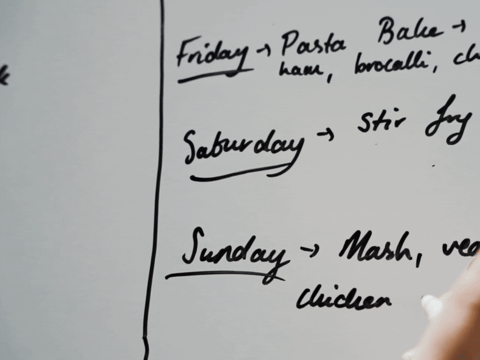 Friday → Pasta Bake →
ham, brocalli,
Saturday → Stir fry
Sunday → Mash,
chicken